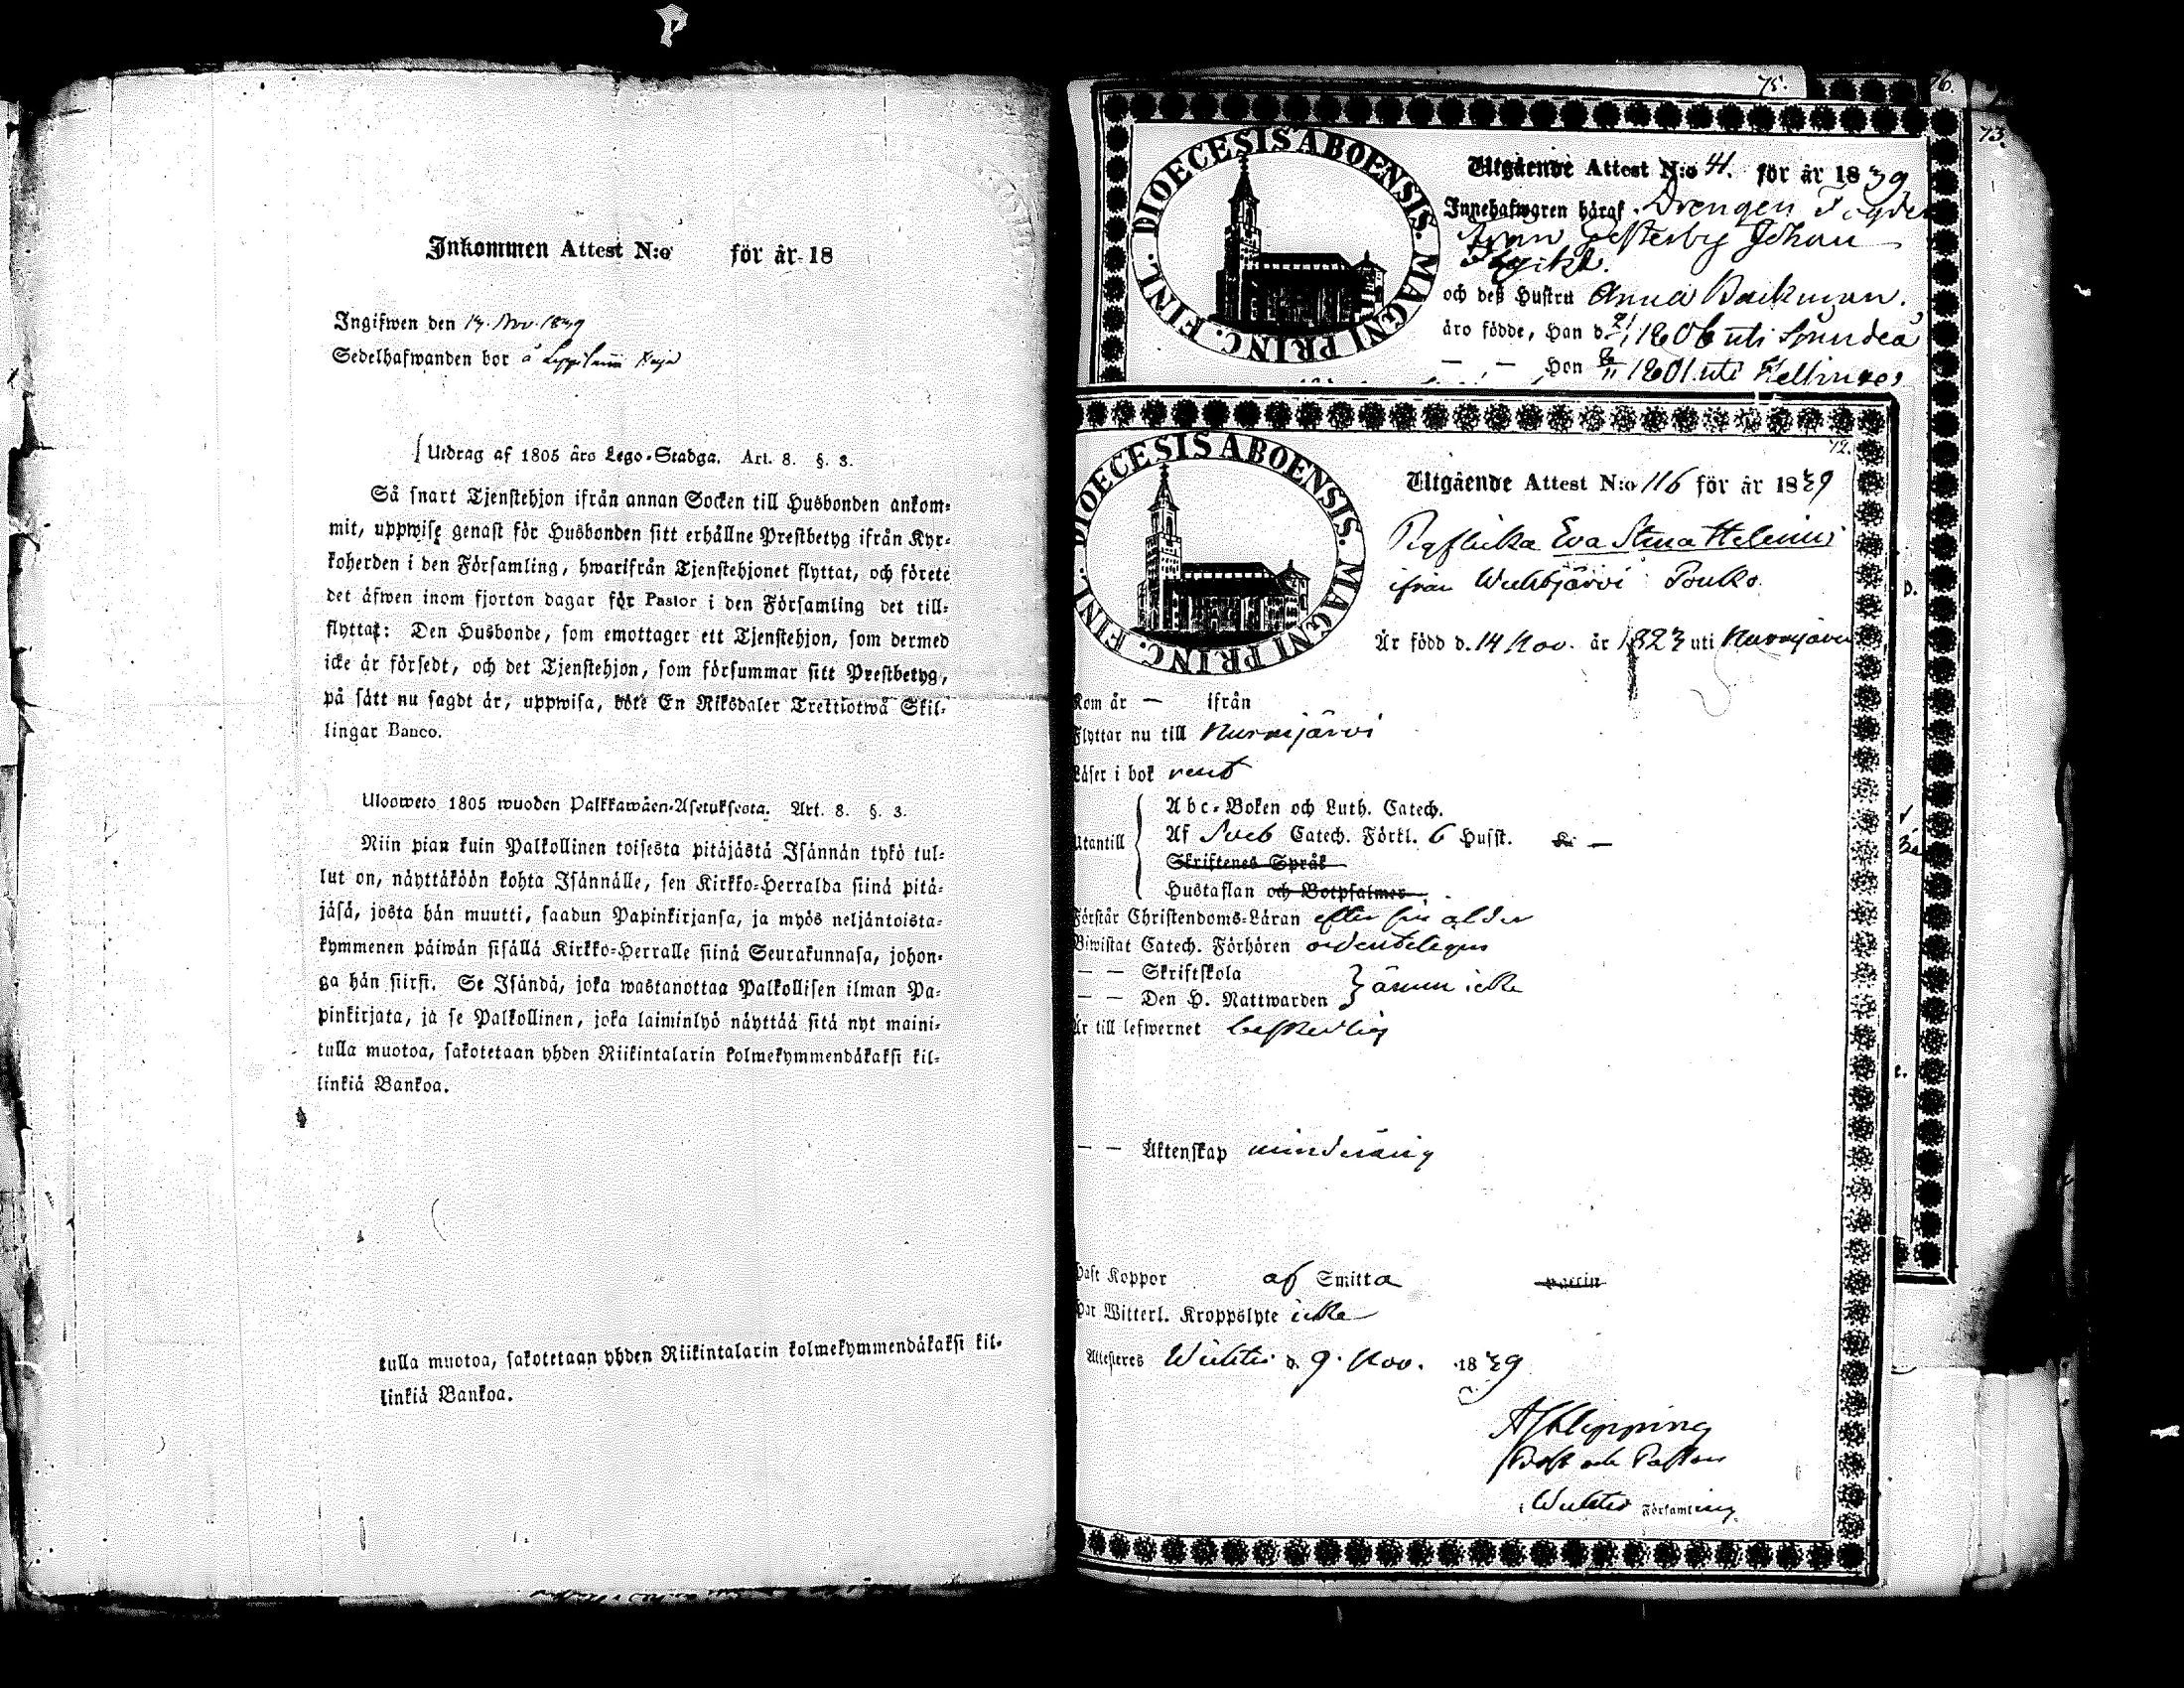 Inkommen Attest N:o för år 18
Ingifwen den 14. Nov. 1839
Sedelhafwanden bor å
Utdrag af 1805 års Lego-Stadga. Art. 8. §. 3.
Så snart Tjenstehjon ifrån annan Socken till Husbonden ankom-
mit, uppwise genast för Husbonden sitt erhållne Prestbetyg ifrån Kyr-
koherden i den Församling, hwarifrån Tjenstehjonet flyttat, och förete
det åfwen inom fjorton dagar för Pastor i den Församling det till-
flyttat: Den Husbonde, som emottager ett Tjenstehjon, som dermed
icke är försedt, och det Tjenstehjon, som försummar sitt Prestbetyg,
på sått nu sagdt är, uppwisa, böte En Riksdaler Trettiotwå Skil-
lingar Banco.
Ulosweto 1805 wuoden Palkkawäen-Asetuksesta. Art. 8. §. 3.
Niin pian kuin Palkollinen toisesta pitäjästä Isännän tykö tul-
lut on, näyttäköön kohta Isännälle, sen Kirkko-Herralda siinä pitä-
jäsä, josta hän muutti, saadun Papinkirjansa, ja myös neljäntoista-
kymmenen päiwän sisällä Kirkko-Herralle siinä Seurakunnasa, johon-
ga hän siirsi. Se Isändä, joka wastanottaa Palkollisen ilman Pa-
pinkirjata, ja se Palkollinen, joka laiminlyö näyttää sitä nyt maini-
tulla muotoa, sakotetaan yhden Riikintalarin kolmekymmendäkaksi kil-
linkiä Bankoa.
tulla muotoa, sakotetaan yhden Riikintalarin kolmekymmendäkaksi kil-
linkiä Bankoa.
75.
76.
73.
DIOECESIS ABOENSIS. MAGNI PRINC. FINL.
Utgående Attest N:o 41. för år 1839
Innehafwaren håraf, Drengen
Johan
och deß Hustru Anna Backman.
äro födde, Han d. 1806 uti Sjundeå
— — Hon 1801 uti
72.
DIOECESIS ABOENSIS. MAGNI PRINC. FINL.
Utgående Attest N:o 116 för år 1839
Pigflicka Eva Stina Helenius
ifrån Wichtjärvi Pouko.
Är född d. 14 Nov. år 1823 uti Nurmijärvi
Kom år — ifrån
Flyttar nu till Nurmijärvi
Läser i bok rent
Utantill
Abc-Boken och Luth. Catech.
Af Sveb Catech. Förkl. 6 Husst. —
Skriftenes Språk
Hustaflan och Botpsalmer
Förstår Christendoms-Läran efter sin ålder
Biwistat Catech. Förhören ordenteligen
— — Skriftskola
— — Den H. Nattwarden } ännu icke
Är till lefwernet beskedlig
— — Äktenskap minderårig
Haft Koppor af Smitta vaccin
Har Witterl. Kroppslyte icke
Attesteres Wichtis d. 9. Nov. 1839
Past
i Wichtis Församling